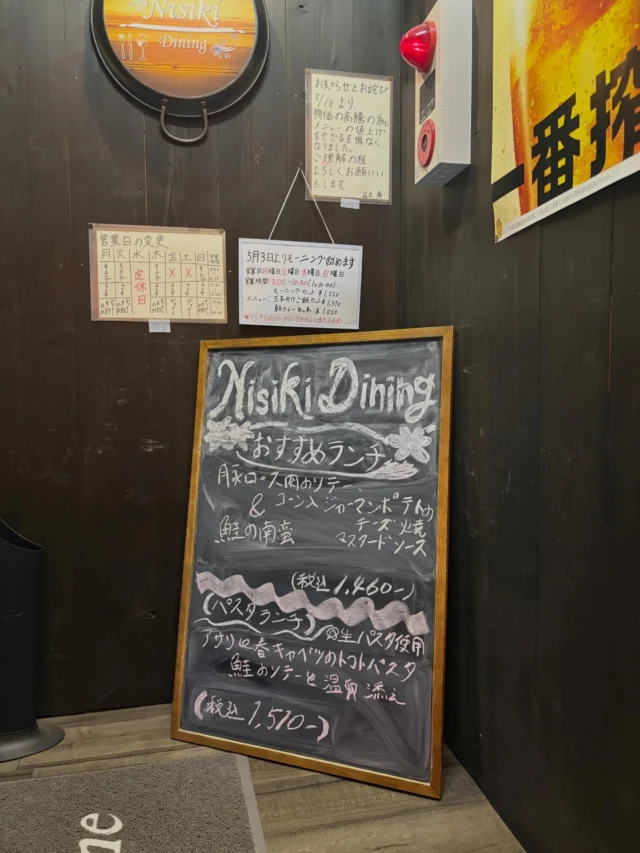 Nisiki
Dining
お知らせとお詫び
5/18 より、
物価の高騰の為、
メニューの値上げ
をせざるを得なく
なりました。
ご理解の程、
よろしくお願いい
たします。
店主
一番搾
営業日の変更
月 火 水 木 金 土 日
定休日
5月3日よりモーニング始めます
営業時間
モーニングセット
メニュー
Nisiki Dining
おすすめランチ
豚ロース肉のソテー、
& コーン入ジャーマンポテトの
チーズ焼
鮭の南蛮 マスタードソース
(税込 1,460-)
(パスタランチ) 生パスタ使用
アサリと春キャベツのトマトパスタ
鮭のソテーと温卵添え
(税込 1,510-)
ne